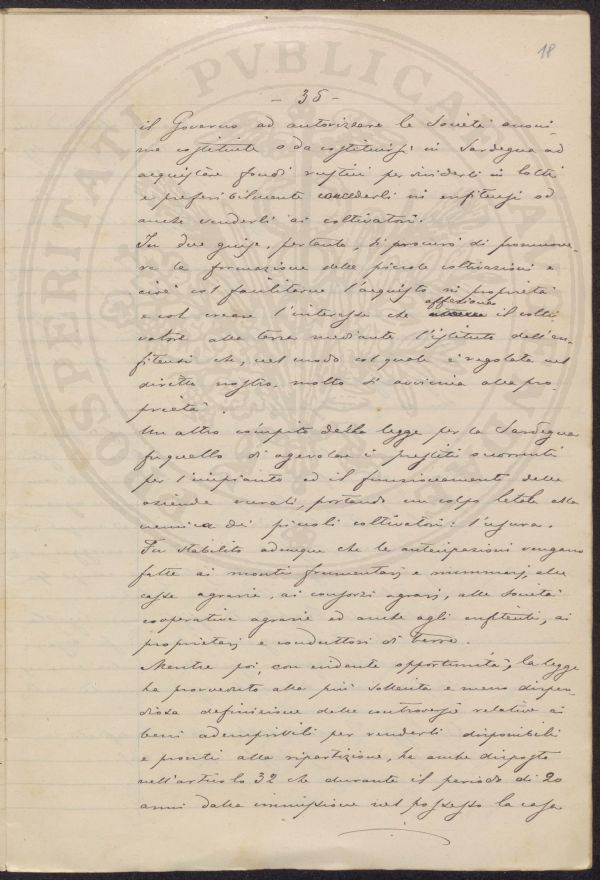 18
- 35 -
il Governo ad autorizzare le Società anoni-
me costituite o da costituirsi in Sardegna ad
acquistare fondi rustici per dividerli in lotti
e preferibilmente concederli in enfiteusi od
anche venderli ai coltivatori.
In due guise, pertanto, si procurò di promuove-
re la formazione delle piccole coltivazioni e
cioè col facilitarne l'acquisto in proprietà
e col creare l'interesse che affeziona il colti-
vatore alla terra mediante l'istituto dell'en-
fiteusi che, nel modo col quale è regolata nel
diritto nostro, molto si avvicina alla pro-
prietà.
Un altro compito della legge per la Sardegna
fu quello di agevolare i prestiti occorrenti
per l'impianto ed il funzionamento delle
aziende rurali, portando un colpo letale alla
nemica dei piccoli coltivatori: l'usura.
Fu stabilito adunque che le anticipazioni vengano
fatte ai monti frumentarj e nummarj, alle
casse agrarie, ai consorzi agrarj, alle società
cooperative agrarie ed anche agli enfiteuti, ai
proprietarj e conduttori di terre.
Mentre poi, con evidente opportunità, la legge
ha provveduto alla più sollecita e meno dispen-
diosa definizione delle controversie relative ai
beni ademprivili per renderli disponibili
e pronti alla ripartizione, ha anche disposto
nell'articolo 32 che durante il periodo di 20
anni dalla immissione nel possesso la cassa
PROSPERITATI PVBLICAE